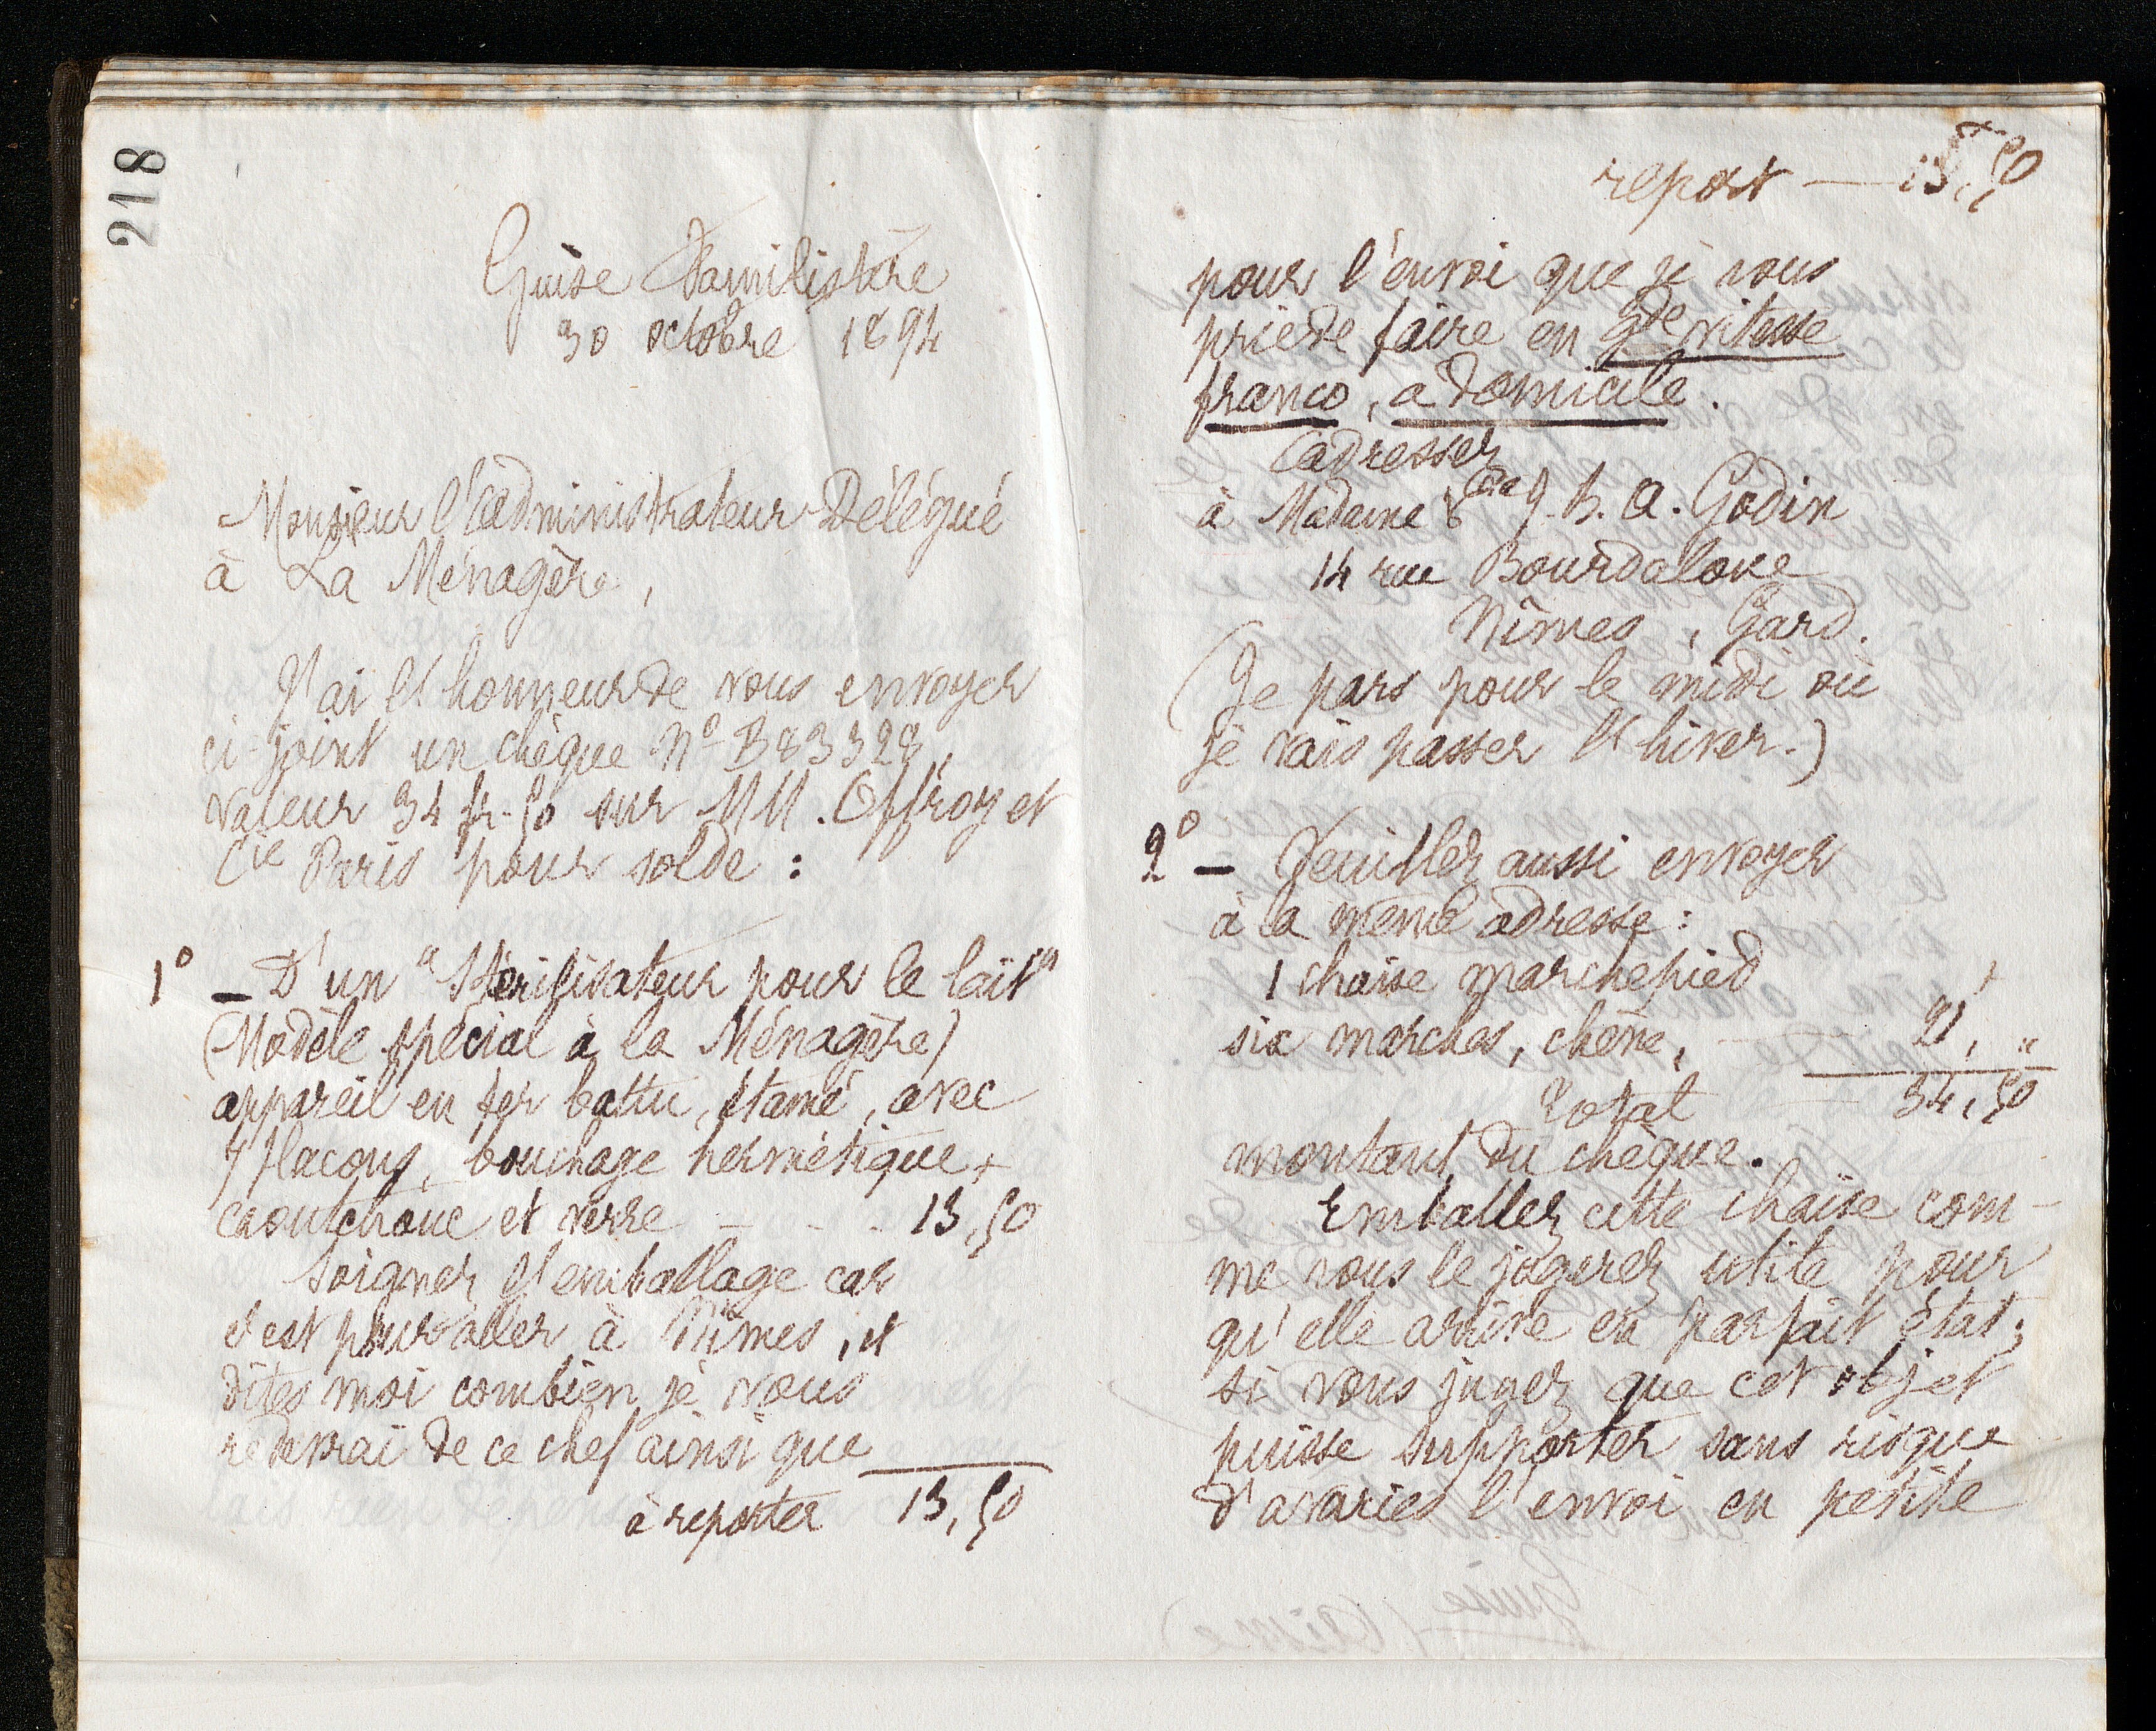 218
Guise Familistère
30 octobre 1894
Monsieur l'administrateur Délégué
à La Ménagère,
J'ai l'honneur de vous envoyer
ci-joint un chèque No B83328,
valeur 34 fr. 50 sur MM. Offroy et
Cie Paris pour solde :
1o — D'un "Stérilisateur pour le lait"
(Modèle spécial à la Ménagère)
appareil en fer battu, étamé, avec
7 flacons, bouchage hermétique,
caoutchouc et verre - - - 13,50
Soigner l'emballage car
c'est pour aller à Nîmes, et
dites moi combien je vous
redevrai de ce chef ainsi que
à reporter 13,50
report — 13,50
pour l'envoi que je vous
prie de faire en gde vitesse
franco, a domicile.
adresser
à Madame Vve J. B. A. Godin
14 rue Bourdaloue
Nîmes, Gard.
(Je pars pour le midi où
je vais passer l'hiver.)
2o — Veuillez aussi envoyer
à la même adresse :
1 chaise marchepied
six marches, chêne, 21, "
Total 34,50
montant du chèque.
Emballez cette chaise com-
me vous le jugerez utile pour
qu'elle arrive en parfait état ;
si vous jugez que cet objet
puisse supporter sans risque
d'avaries l'envoi en petite